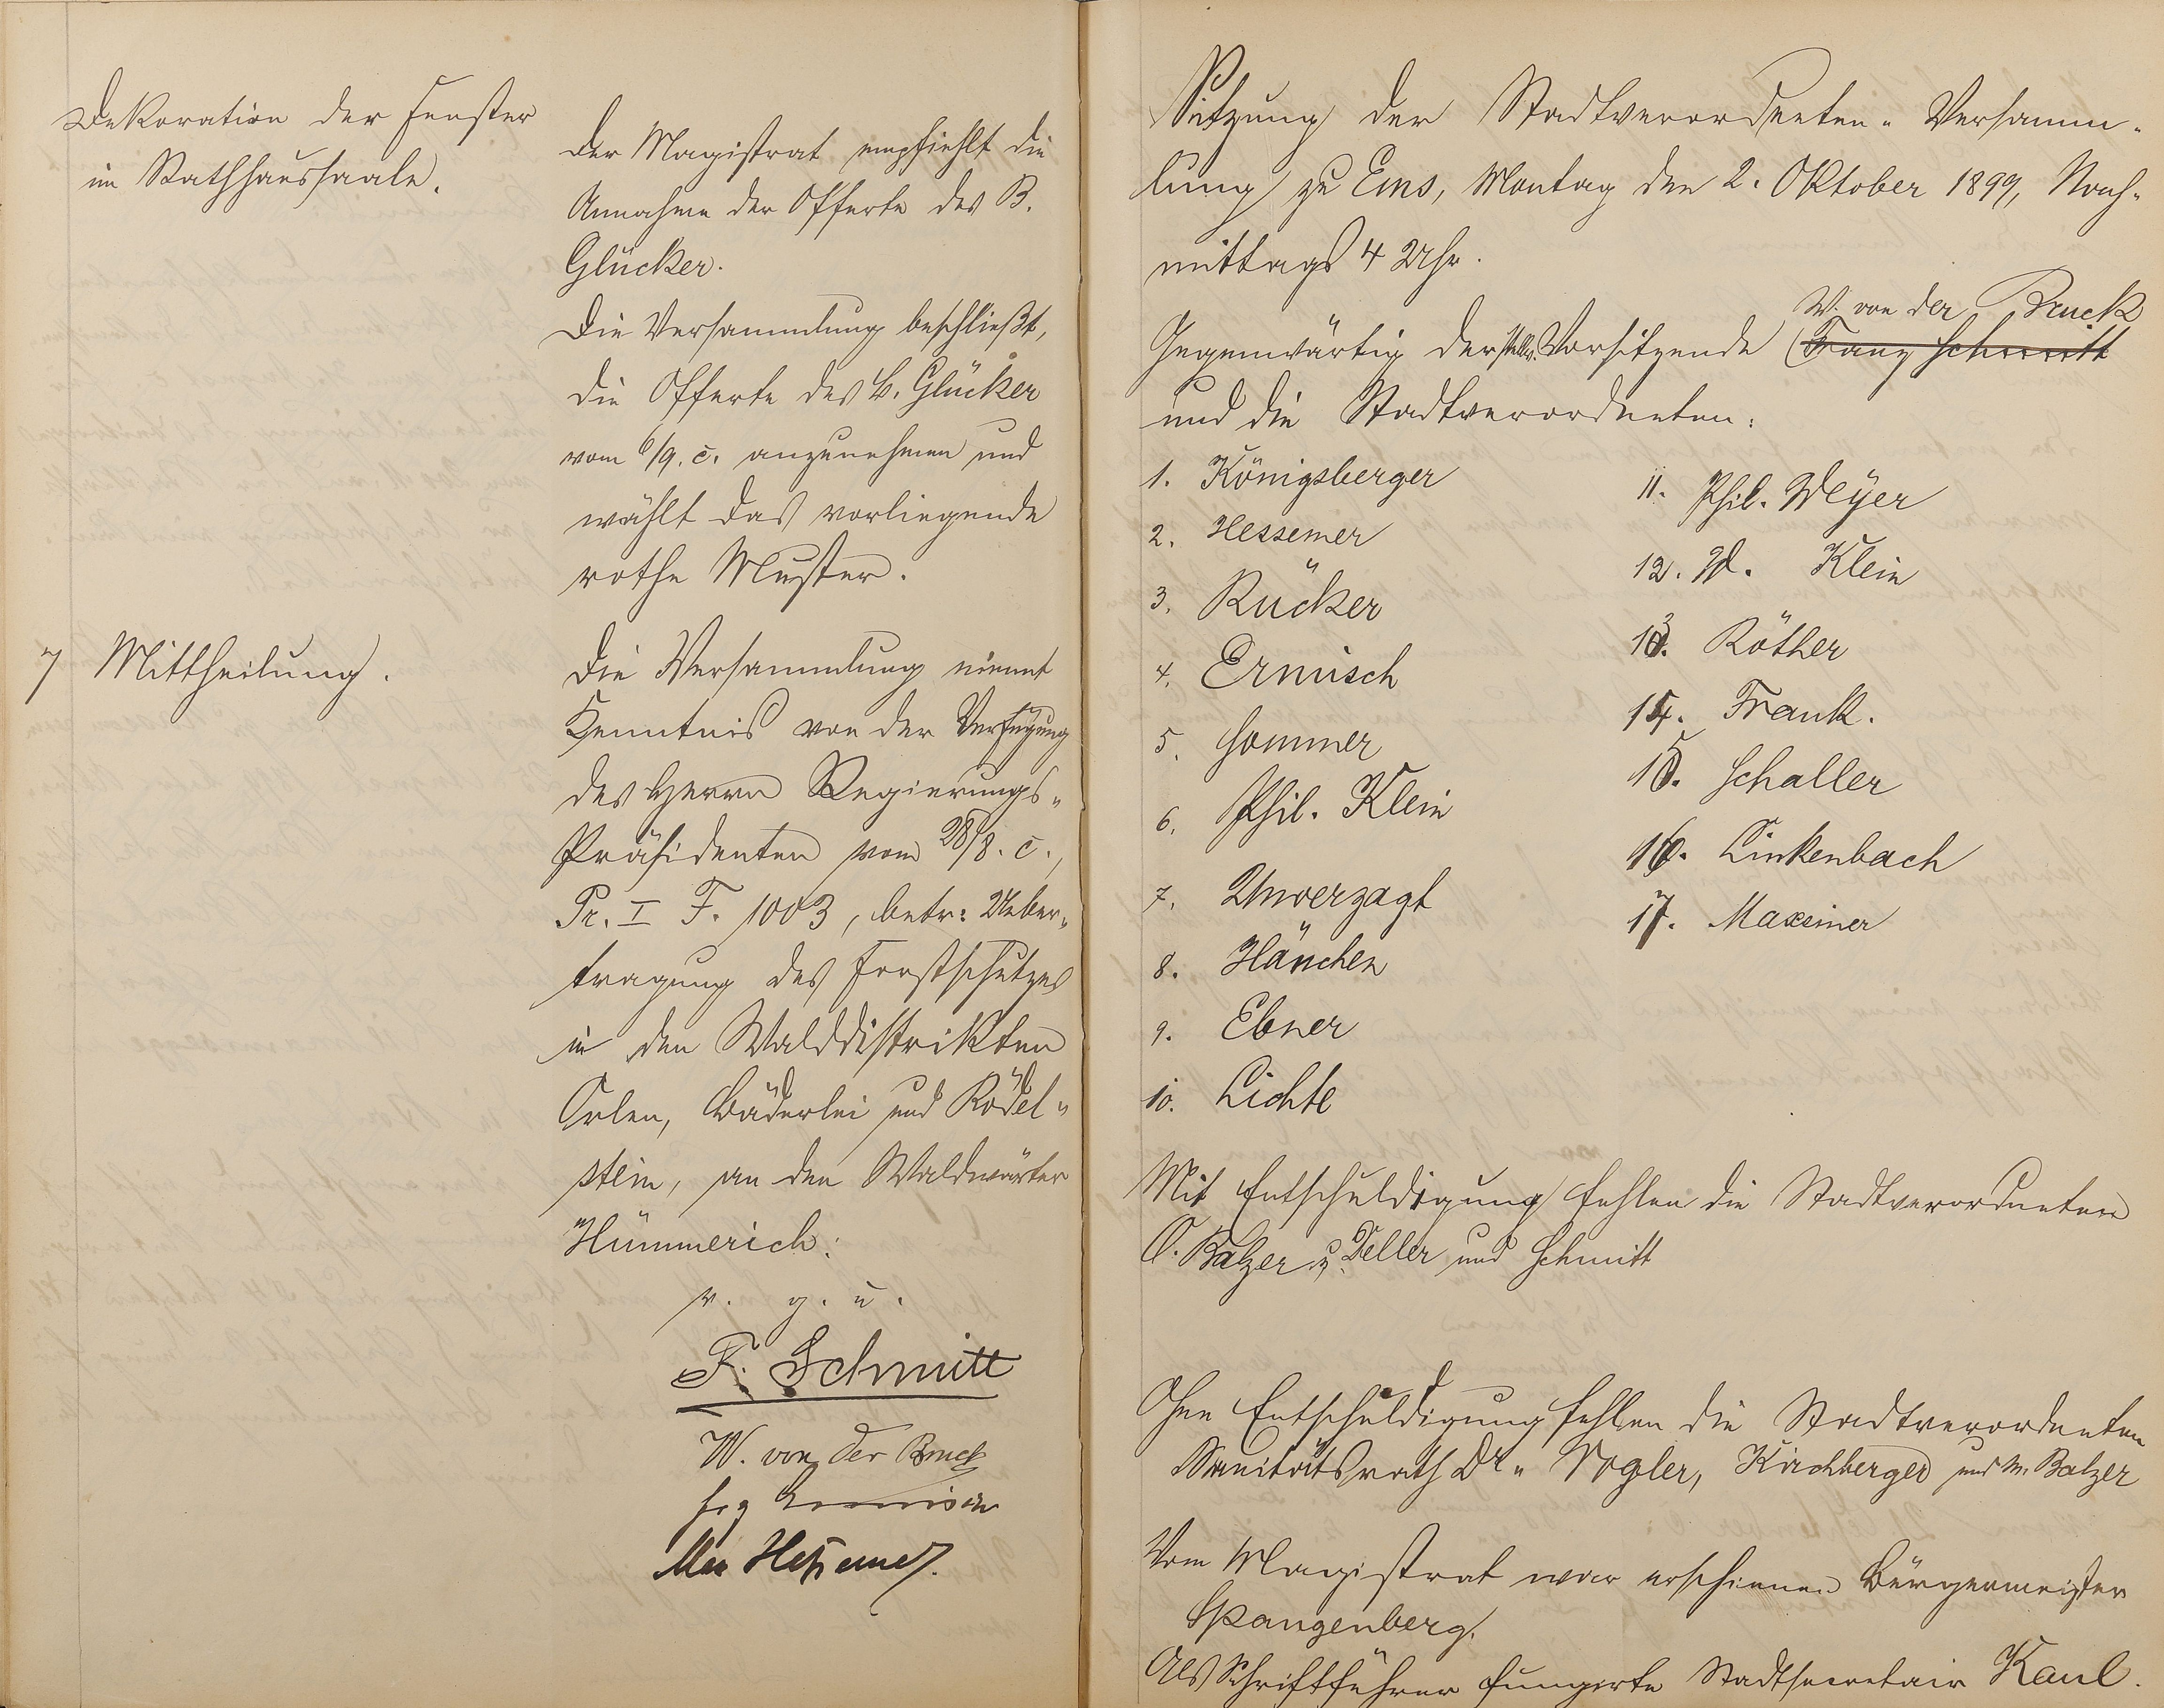 Dekoration der Fenster
im Rathhaussaale.
Der Magistrat empfiehlt die
Annahme der Offerte des B.
Glücker.
Die Versammlung beschließt,
die Offerte des B. Glücker
vom 6/9. c. anzunehmen und
wählt das vorliegende
rothe Muster.
7 Mittheilung.
Die Versammlung nimmt
Kenntnis von der Verfügung
des Herrn Regierungs-
Präsidenten vom 28/8. c.,
Pr. I F. 1003, betr: Ueber-
tragung des Forstschutzes
in den Walddistrikten
Orlen, Bäderlei und Rödel-
stein, an den Waldwärter
Hümmerich.
v. g. u.
F. Schmitt
W. von der Bruck
Max Hessemer.
Sitzung der Stadtverordneten-Versamm-
lung zu Ems, Montag den 2. Oktober 1899, Nach-
mittags 4 Uhr.
W. von der Bruck
Gegenwärtig der stellv. Vorsitzende Franz Schmitt
und die Stadtverordneten:
1. Königsberger
2. Hessemer
3. Rücker
4. Ermisch
5. Sommer
6. Phil. Klein
7. Unverzagt
8. Hänchen
9. Ebner
10. Lichte
11. Phil. Meyer
12. W. Klein
13. Röther
14. Frank.
15. Schaller
16. Linkenbach
17. Maxeiner
Mit Entschuldigung fehlen die Stadtverordneten
O. Balzer u. Deller und Schmitt
Ohne Entschuldigung fehlen die Stadtverordneten
Sanitätsrath Dr. Vogler, Kirchberger und M. Balzer
Vom Magistrat war erschienen Bürgermeister
Spangenberg.
Als Schriftführer fungirte Stadtsecretair Kaul.